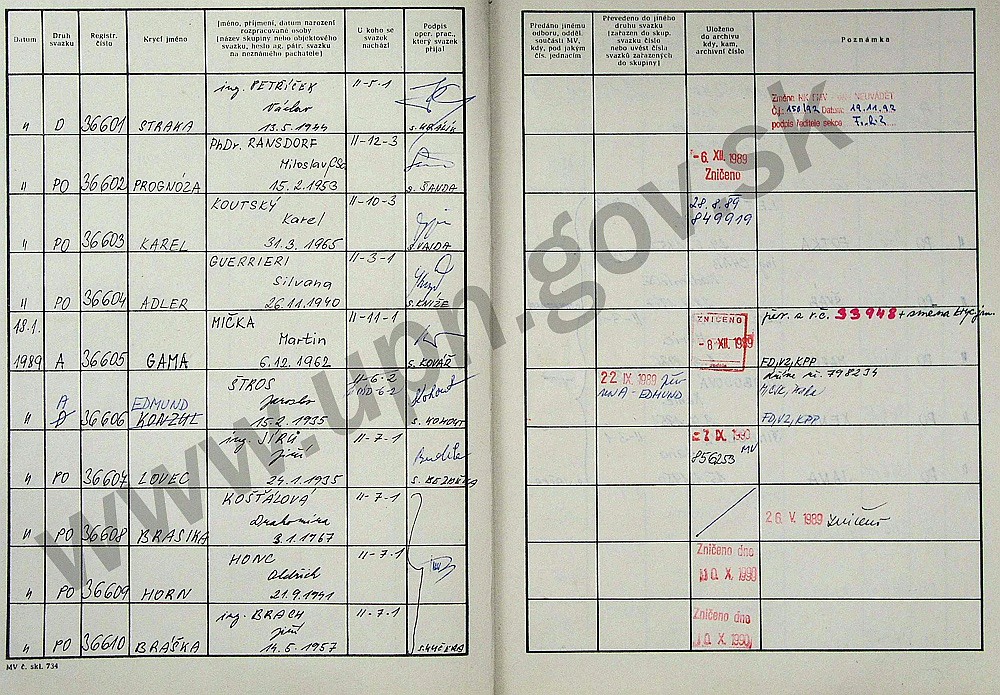 Datum
Druh svazku
Registr. číslo
Krycí jméno
Jméno, příjmení, datum narození rozpracované osoby
[název skupiny nebo objektového svazku, heslo ag. pátr. svazku na neznámého pachatele]
U koho se svazek nachází
Podpis oper. prac., který svazek přijal
Předáno jinému odboru, odděl. součásti MV, kdy, pod jakým čís. jednacím
Převedeno do jiného druhu svazku [zařazen do skup. svazku číslo nebo uvést čísla svazků zařazených do skupiny]
Uloženo do archivu kdy, kam, archivní číslo
Poznámka
ing. PETŘÍČEK II-5-1
Václav
" D 36601 STRAKA 13.5.1944 s. KRALÍK
Změna NEUVÁDĚT
Čj.: 150/92 Datum: 19.11.92
podpis ředitele sekce
PhDr. RANSDORF II-12-3
Miloslav, CSc.
" PO 36602 PROGNÓZA 15.2.1953 s. ŠANDA
-6. XII. 1989
Zničeno
KOUTSKÝ II-10-3
Karel
" PO 36603 KAREL 31.3.1965 s. VAJDA
28.8.89
849919
GUERRIERI II-3-1
Silvana
" PO 36604 ADLER 26.11.1940 s. KNÍŽE
18.1. MIČKA II-11-1
Martin
1989 A 36605 GAMA 6.12.1962 s. KOVÁŘ
ZNIČENO
-8 XII. 1989
per. a r.č. 33948 + změna kryc. jm.
FD, VZ, KPP
ŠTROS II-6-2
A EDMUND Jaroslav
" D 36606 KONZUL 15.2.1935 s. KOHOUT
22 IX. 1989
A - EDMUND
798234
FD, VZ, KPP
ing. JÍRŮ II-7-1
Jiří
" PO 36607 LOVEC 24.1.1935
-7 IX. 1990
MV
856253
KOŠŤÁLOVÁ II-7-1
Drahomíra
" PO 36608 BRASIKA 3.1.1967
26. V. 1989 zničeno
HONC II-7-1
Oldřich
" PO 36609 HORN 21.9.1941
Zničeno dne
10. X. 1990
ing. BRACH II-7-1
Jiří
" PO 36610 BRÁŠKA 14.5.1957 s. KUČERA
Zničeno dne
10. X. 1990
MV č. skl. 734
www.upn.gov.sk